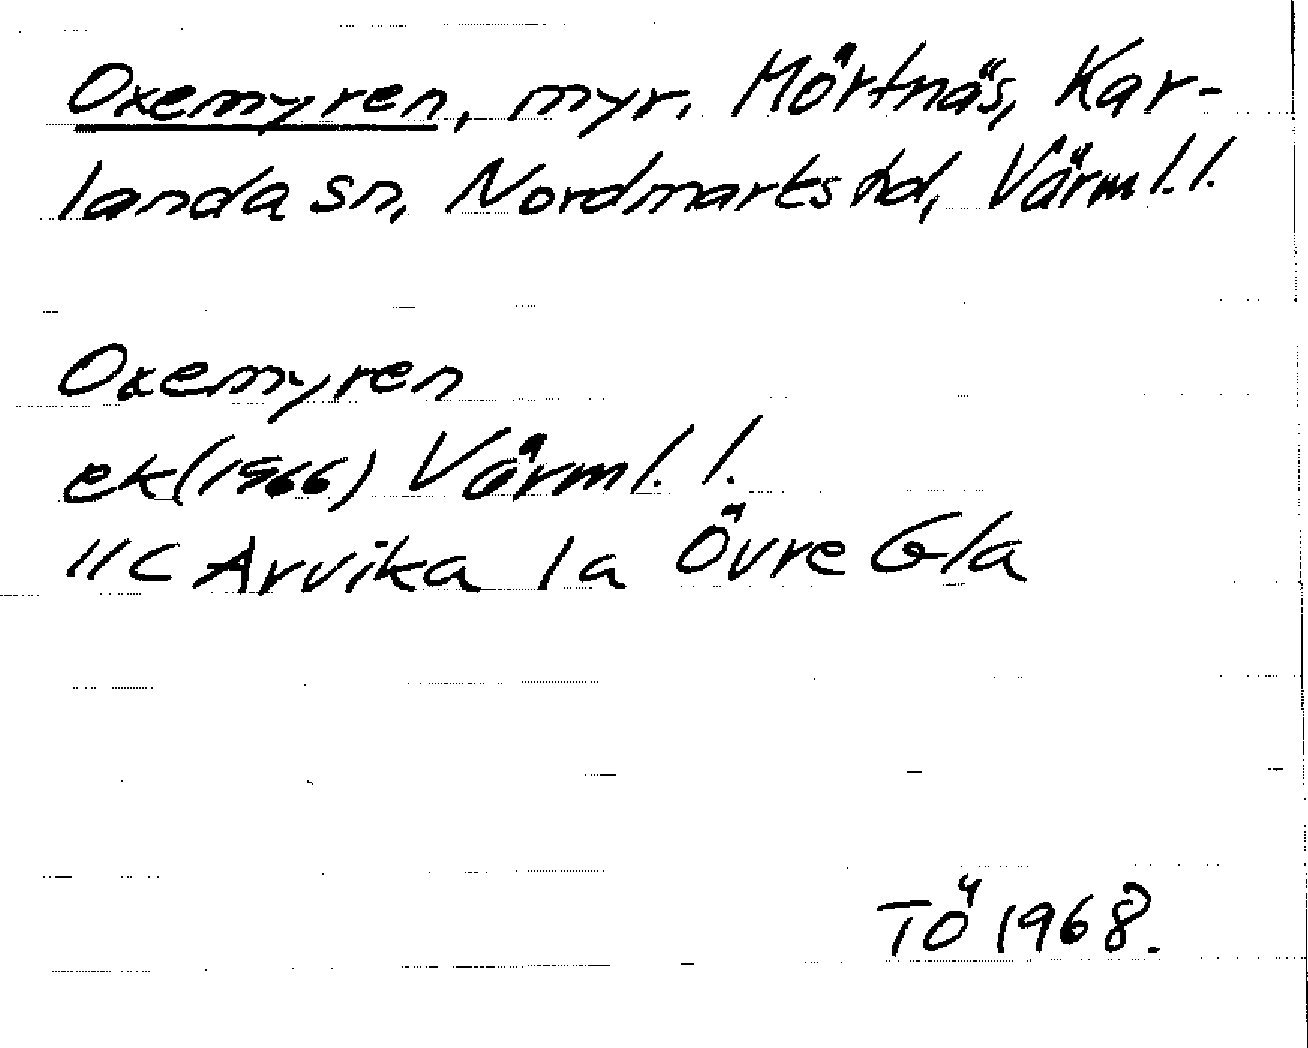 Oxemyren, myr, Mörtnäs, Kar-
landa sn, Nordmarks hd, Värml. l.
Oxemyren
ek(1966) Värml. l.
11C Arvika 1a Övre Gla
TÖ 1968.